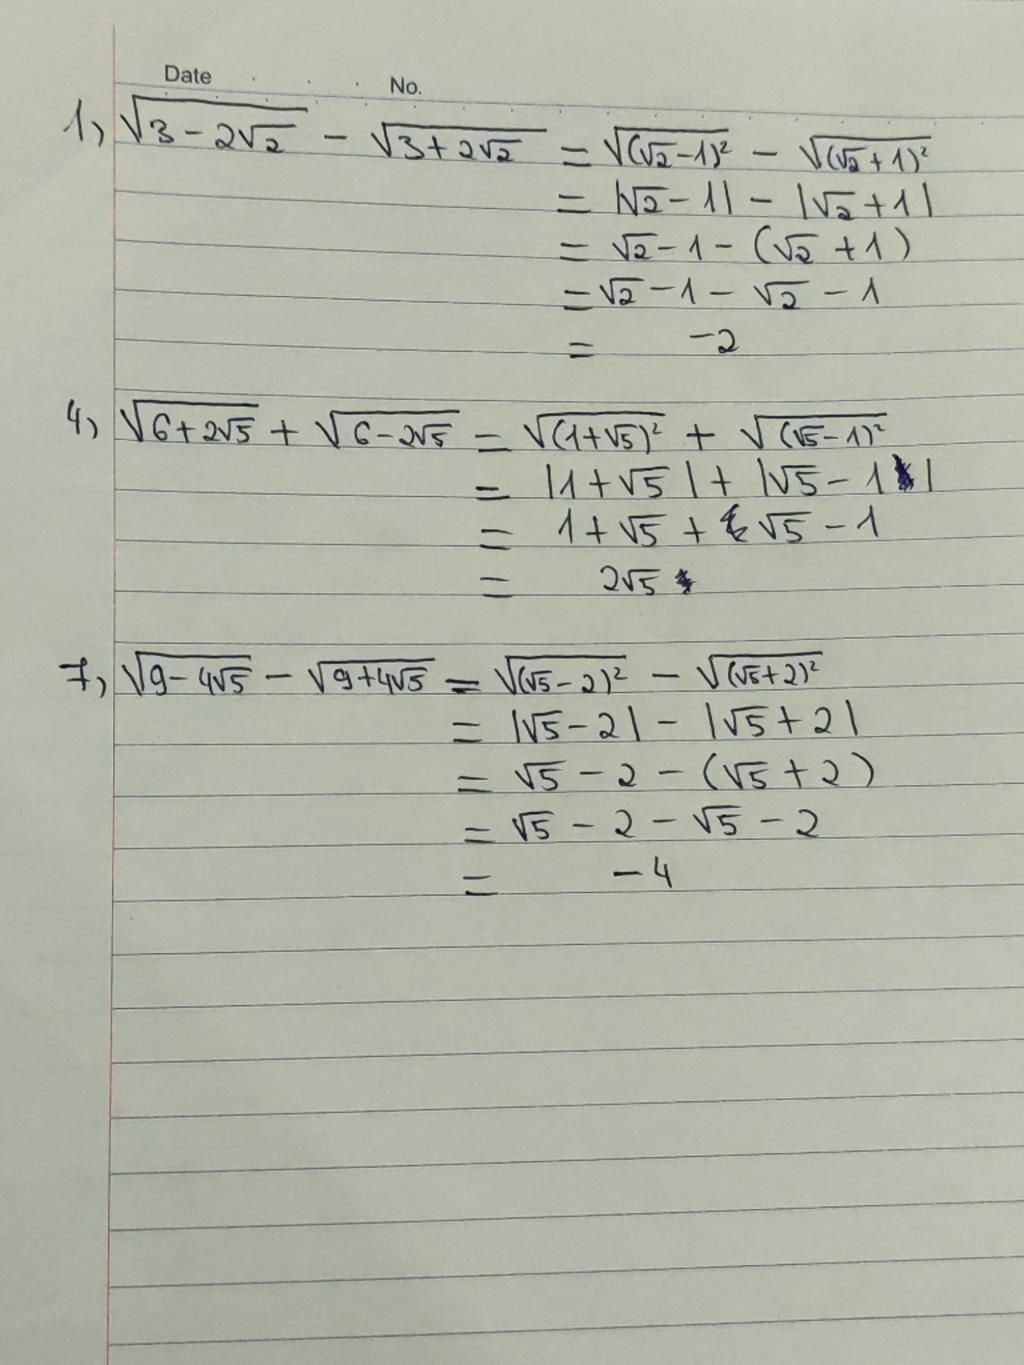 Date No.
1, √(3-2√2) - √(3+2√2) = √((√2-1)²) - √((√2+1)²)
= |√2-1| - |√2+1|
= √2-1-(√2+1)
= √2-1-√2-1
= -2
4, √(6+2√5) + √(6-2√5) = √((1+√5)²) + √((√5-1)²)
= |1+√5| + |√5-1|
= 1+√5+√5-1
= 2√5
7, √(9-4√5) - √(9+4√5) = √((√5-2)²) - √((√5+2)²)
= |√5-2| - |√5+2|
= √5-2-(√5+2)
= √5-2-√5-2
= -4